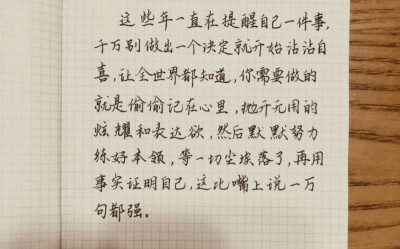 这些年一直在提醒自己一件事,
千万别做出一个决定就开始沾沾自
喜,让全世界都知道,你需要做的
就是偷偷记在心里,抛开无用的
炫耀和表达欲,然后默默努力
练好本领,等一切尘埃落了,再用
事实证明自己,这比嘴上说一万
句都强。